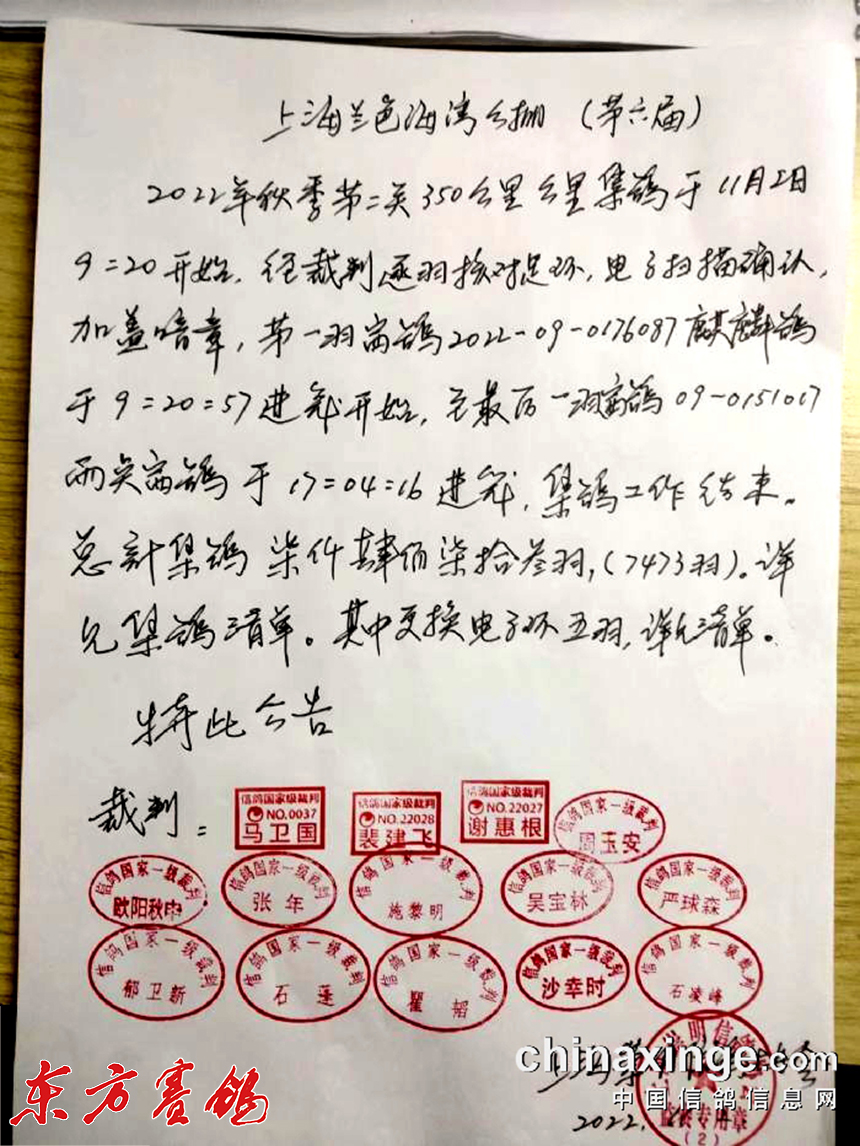 上海兰色海湾公棚（第六届）
2022年秋季第二关350公里公里集鸽于11月2日
9=20开始，经裁判逐羽核对足环，电子扫描确认，
加盖暗章，第一羽赛鸽2022-09-0176087麒麟鸽
于9=20=57进笼开始，至最后一羽赛鸽09-0151017
两关赛鸽于17=04=16进笼，集鸽工作结束。
总计集鸽柒仟肆佰柒拾叁羽，(7473羽)。详
见集鸽清单。其中更换电子环五羽，详见清单。
特此公告
裁判：
信鸽国家级裁判
NO.0037
马卫国
信鸽国家级裁判
NO.22028
裴建飞
信鸽国家级裁判
NO.22027
谢惠根
信鸽国家一级裁判
周玉安
信鸽国家一级裁判
欧阳秋中
信鸽国家一级裁判
张年
信鸽国家一级裁判
施黎明
信鸽国家一级裁判
吴宝林
信鸽国家一级裁判
严球森
信鸽国家一级裁判
郁卫新
信鸽国家一级裁判
石蓬
信鸽国家一级裁判
瞿韬
信鸽国家一级裁判
沙幸时
信鸽国家一级裁判
石凌峰
chinaxinge.com
中国信鸽信息网
2022.
专用章
(2)
东方赛鸽